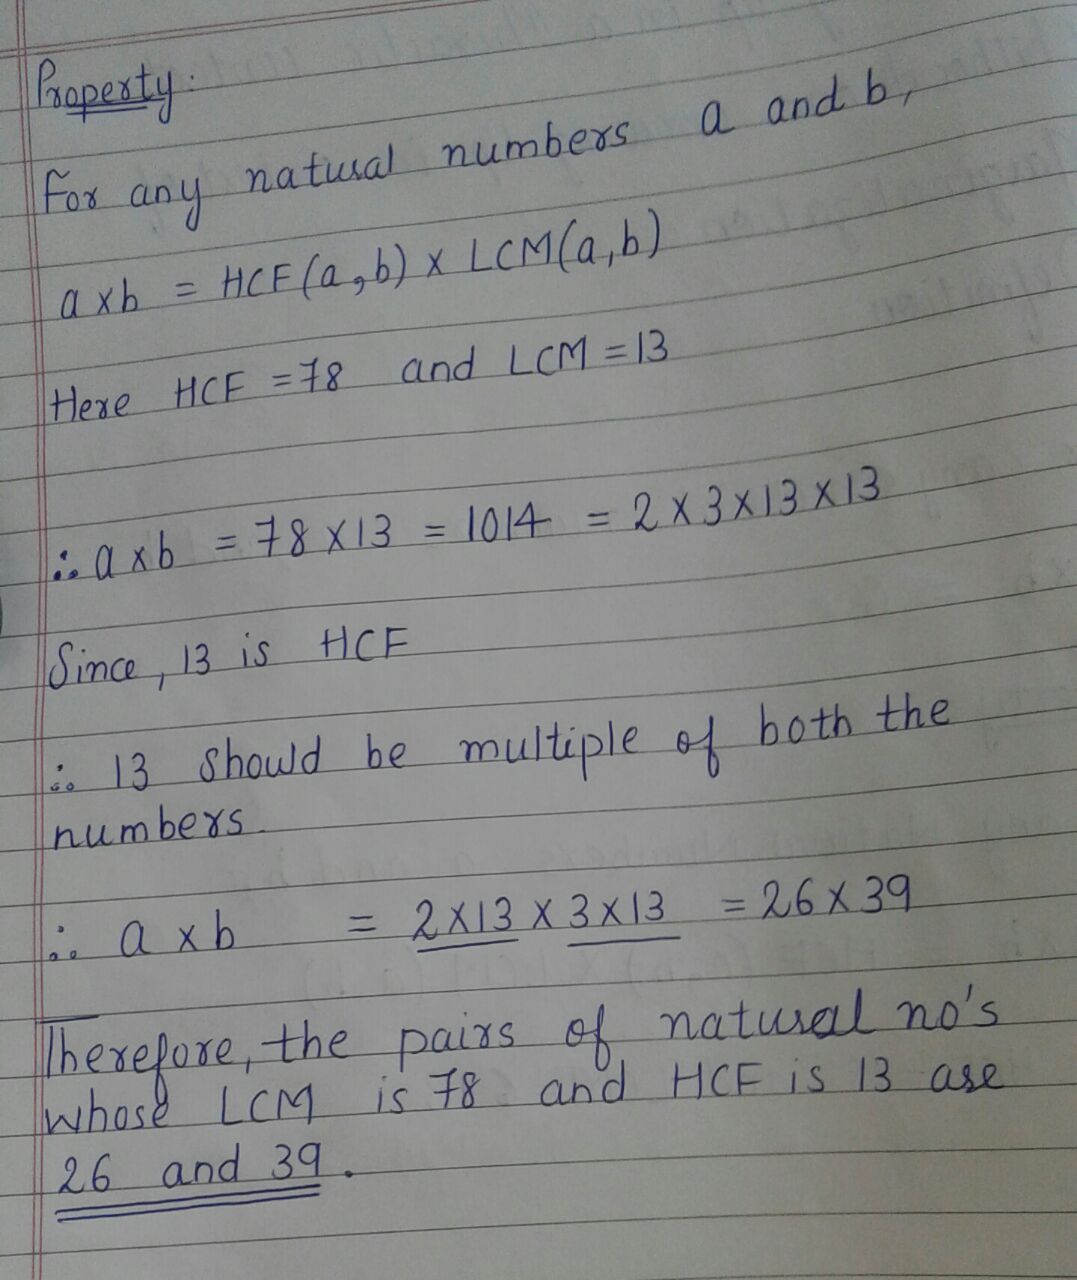 Property:
For any natural numbers a and b,
a x b = HCF(a,b) x LCM(a,b)
Here HCF = 78 and LCM = 13
∴ a x b = 78 x 13 = 1014 = 2 x 3 x 13 x 13
Since, 13 is HCF
∴ 13 should be multiple of both the
numbers.
∴ a x b = 2x13 x 3x13 = 26 x 39
Therefore, the pairs of natural no's
whose LCM is 78 and HCF is 13 are
26 and 39.